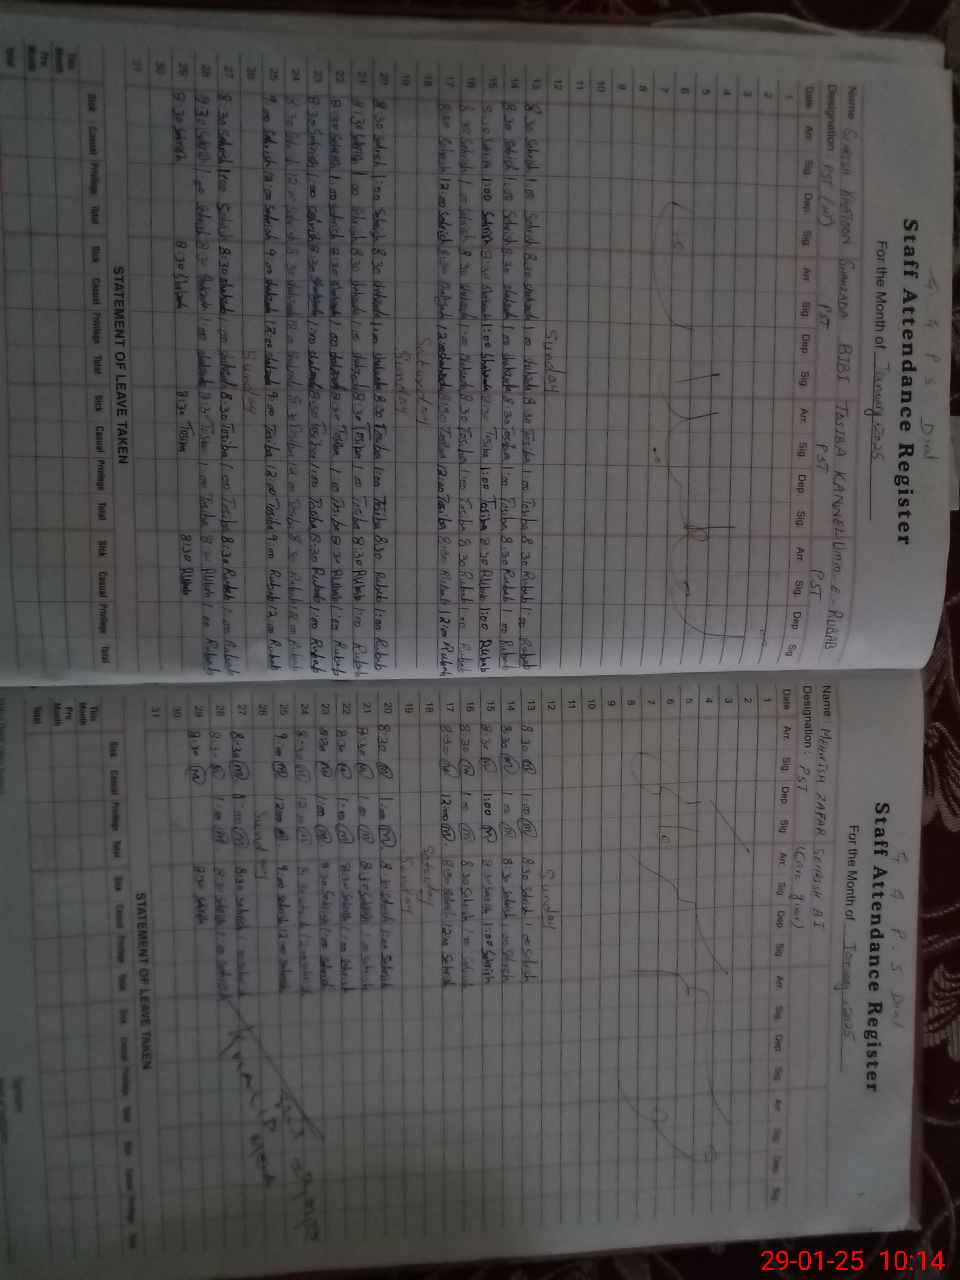 G P S Dial
Staff Attendance Register
For the Month of January, 2025
Name SEHRISH KHATOON SHAHZADA BIBI TASIBA KANWEL UMM-E-RUBAB
Designation PST (HT) PST PST PST
Date Arr. Sig. Dep. Sig. Arr. Sig. Dep. Sig. Arr. Sig. Dep. Sig. Arr. Sig. Dep. Sig.
1
2
3
4
5
6
7
8
9
10
11
12 Sunday
13 8:30 Sehrish 1:00 Sehrish 8:30 shahzada 1:00 shahzada 8:30 Tasiba 1:00 Tasiba 8:30 Rubab 1:00 Rubab
14 8:30 Sehrish 1:00 Sehrish 8:30 shahzada 1:00 shahzada 8:30 Tasiba 1:00 Tasiba 8:30 Rubab 1:00 Rubab
15 8:30 Sehrish 1:00 Sehrish 8:30 shahzada 1:00 shahzada 8:30 Tasiba 1:00 Tasiba 8:30 Rubab 1:00 Rubab
16 8:30 Sehrish 1:00 Sehrish 8:30 shahzada 1:00 shahzada 8:30 Tasiba 1:00 Tasiba 8:30 Rubab 1:00 Rubab
17 8:30 Sehrish 12:00 Sehrish 8:30 shahzada 12:00 shahzada 8:30 Tasiba 12:00 Tasiba 8:30 Rubab 12:00 Rubab
18 Saturday
19 Sunday
20 8:30 Sehrish 1:00 Sehrish 8:30 shahzada 1:00 shahzada 8:30 Tasiba 1:00 Tasiba 8:30 Rubab 1:00 Rubab
21 8:30 Sehrish 1:00 Sehrish 8:30 shahzada 1:00 shahzada 8:30 Tasiba 1:00 Tasiba 8:30 Rubab 1:00 Rubab
22 8:30 Sehrish 1:00 Sehrish 8:30 shahzada 1:00 shahzada 8:30 Tasiba 1:00 Tasiba 8:30 Rubab 1:00 Rubab
23 8:30 Sehrish 1:00 Sehrish 8:30 shahzada 1:00 shahzada 8:30 Tasiba 1:00 Tasiba 8:30 Rubab 1:00 Rubab
24 8:30 Sehrish 12:00 Sehrish 8:30 shahzada 12:00 shahzada 8:30 Tasiba 12:00 Tasiba 8:30 Rubab 12:00 Rubab
25 9:00 Sehrish 12:00 Sehrish 9:00 shahzada 12:00 shahzada 9:00 Tasiba 12:00 Tasiba 9:00 Rubab 12:00 Rubab
26 Sunday
27 8:30 Sehrish 1:00 Sehrish 8:30 shahzada 1:00 shahzada 8:30 Tasiba 1:00 Tasiba 8:30 Rubab 1:00 Rubab
28 8:30 Sehrish 1:00 Sehrish 8:30 shahzada 1:00 shahzada 8:30 Tasiba 1:00 Tasiba 8:30 Rubab 1:00 Rubab
29 8:30 Sehrish 8:30 shahzada 8:30 Tasiba 8:30 Rubab
30
31
STATEMENT OF LEAVE TAKEN
Sick Casual Privilege Total Sick Casual Privilege Total Sick Casual Privilege Total Sick Casual Privilege Total
This Month
Prv. Month
Total
G P S Dial
Staff Attendance Register
For the Month of January, 2025
Name: MEHWISH ZAFAR SEHRISH BI
Designation: PST
Date Arr. Sig. Dep. Sig. Arr. Sig. Dep. Sig. Arr. Sig. Dep. Sig. Arr. Sig. Dep. Sig.
1
2
3
4
5
6
7
8
9
10
11
12 Sunday
13 8:30 M 1:00 M 8:30 Sehrish 1:00 Sehrish
14 8:30 M 1:00 M 8:30 Sehrish 1:00 Sehrish
15 8:30 M 1:00 M 8:30 Sehrish 1:00 Sehrish
16 8:30 M 1:00 M 8:30 Sehrish 1:00 Sehrish
17 8:30 M 12:00 M 8:30 Sehrish 12:00 Sehrish
18 Saturday
19 Sunday
20 8:30 M 1:00 M 8:30 Sehrish 1:00 Sehrish
21 8:30 M 1:00 M 8:30 Sehrish 1:00 Sehrish
22 8:30 M 1:00 M 8:30 Sehrish 1:00 Sehrish
23 8:30 M 1:00 M 8:30 Sehrish 1:00 Sehrish
24 8:30 M 12:00 M 8:30 Sehrish 12:00 Sehrish
25 9:00 M 12:00 M 9:00 Sehrish 12:00 Sehrish
26 Sunday
27 8:30 M 1:00 M 8:30 Sehrish 1:00 Sehrish
28 8:30 M 1:00 M 8:30 Sehrish 1:00 Sehrish
29 8:30 M 8:30 Sehrish
30
31
STATEMENT OF LEAVE TAKEN
Sick Casual Privilege Total Sick Casual Privilege Total Sick Casual Privilege Total Sick Casual Privilege Total
This Month
Prv. Month
Total
29-01-25 10:14